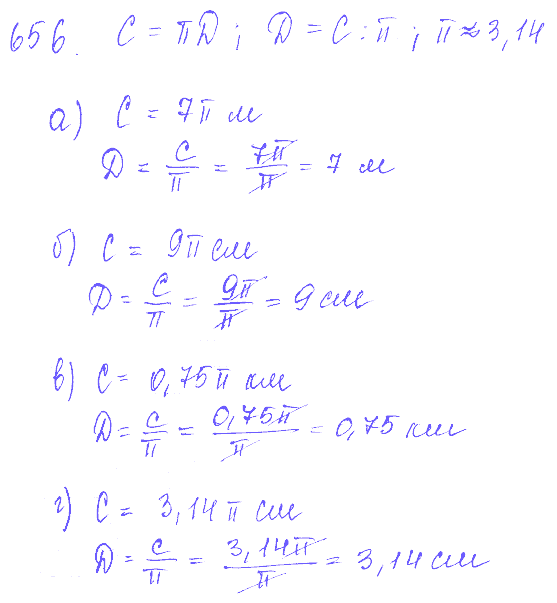 656. C = πD ; D = C : π ; π ≈ 3,14
а) C = 7π м
D = C/π = 7π/π = 7 м
б) C = 9π см
D = C/π = 9π/π = 9 см
в) C = 0,75π км
D = C/π = 0,75π/π = 0,75 км
г) C = 3,14π см
D = C/π = 3,14π/π = 3,14 см